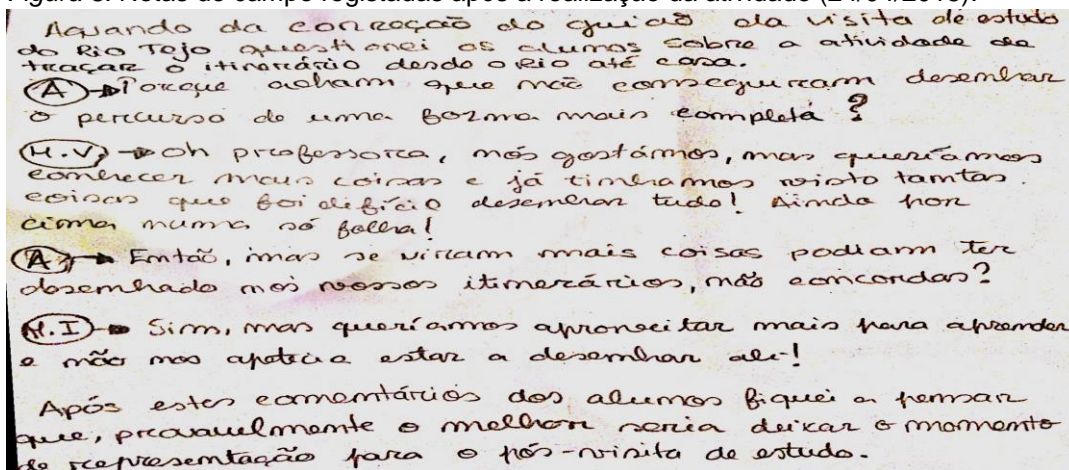 Aquando da correção do guião da visita de estudo
do Rio Tejo questionei os alunos sobre a atividade de
traçar o itinerário desde o Rio até casa.
(A)→Porque acham que não conseguiram desenhar
o percurso de uma forma mais completa?
→Oh professora, nós gostámos, mas queríamos
conhecer mais coisas e já tinhamos visto tantas
coisas que foi difícil desenhar tudo! Ainda por
cima numa só folha!
(A)→ Então, mas se viram mais coisas podiam ter
desenhado nos vossos itinerários, não concordas?
→ Sim, mas queríamos aproveitar mais para aprender
e não nos apetecia estar a desenhar ali!
Após estes comentários dos alunos fiquei a pensar
que, provavelmente o melhor seria deixar o momento
de representação para o pós-visita de estudo.